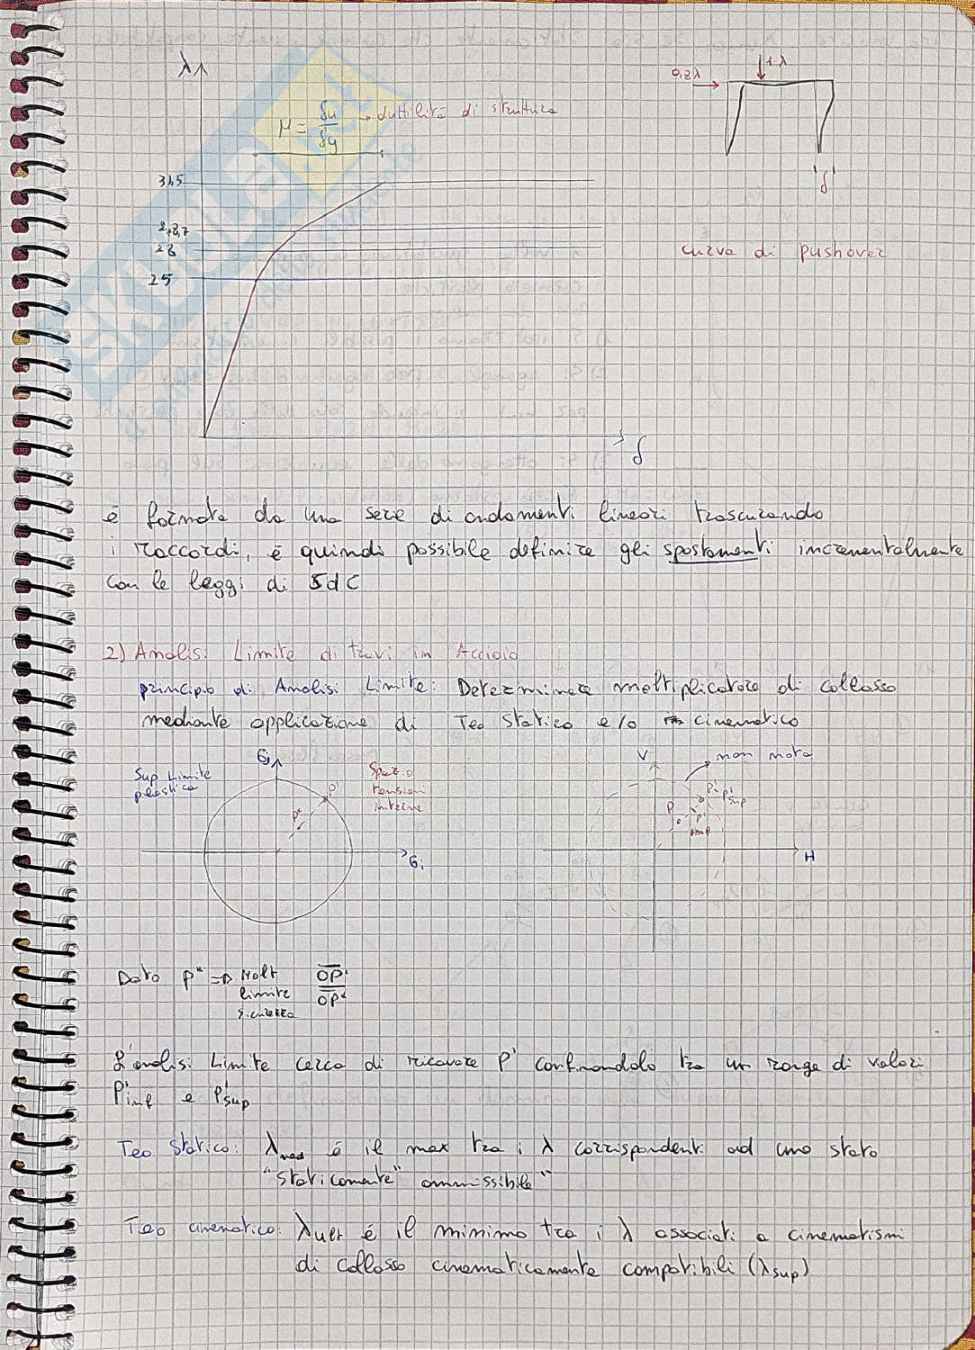 λ
0,2λ
1λ
μ = δu/δy → duttilità di struttura
'δ'
31,5
28
25
curva di pushover
δ
è formata da una serie di andamenti lineari trascurando
i raccordi, è quindi possibile definire gli spostamenti incrementalmente
con le leggi di SdC
2) Analisi Limite di travi in Acciaio
principio di Analisi Limite: Determinare moltiplicatore di collasso
mediante applicazione di Teo Statico e/o cinematico
Sup Limite
plastica
P'
P*
Spazio
tensioni
interne
V
non nota
P
P'
P'sup
P'inf
H
Dato P* => Molt OP'
limite OP*
L'analisi Limite cerca di ricavare P' confinandolo tra un range di valori
P'inf e P'sup
Teo Statico: λ è il max tra i λ corrispondenti ad uno stato
"staticamente" ammissibile"
Teo cinematico: λult è il minimo tra i λ associati a cinematismi
di collasso cinematicamente compatibili (λsup)